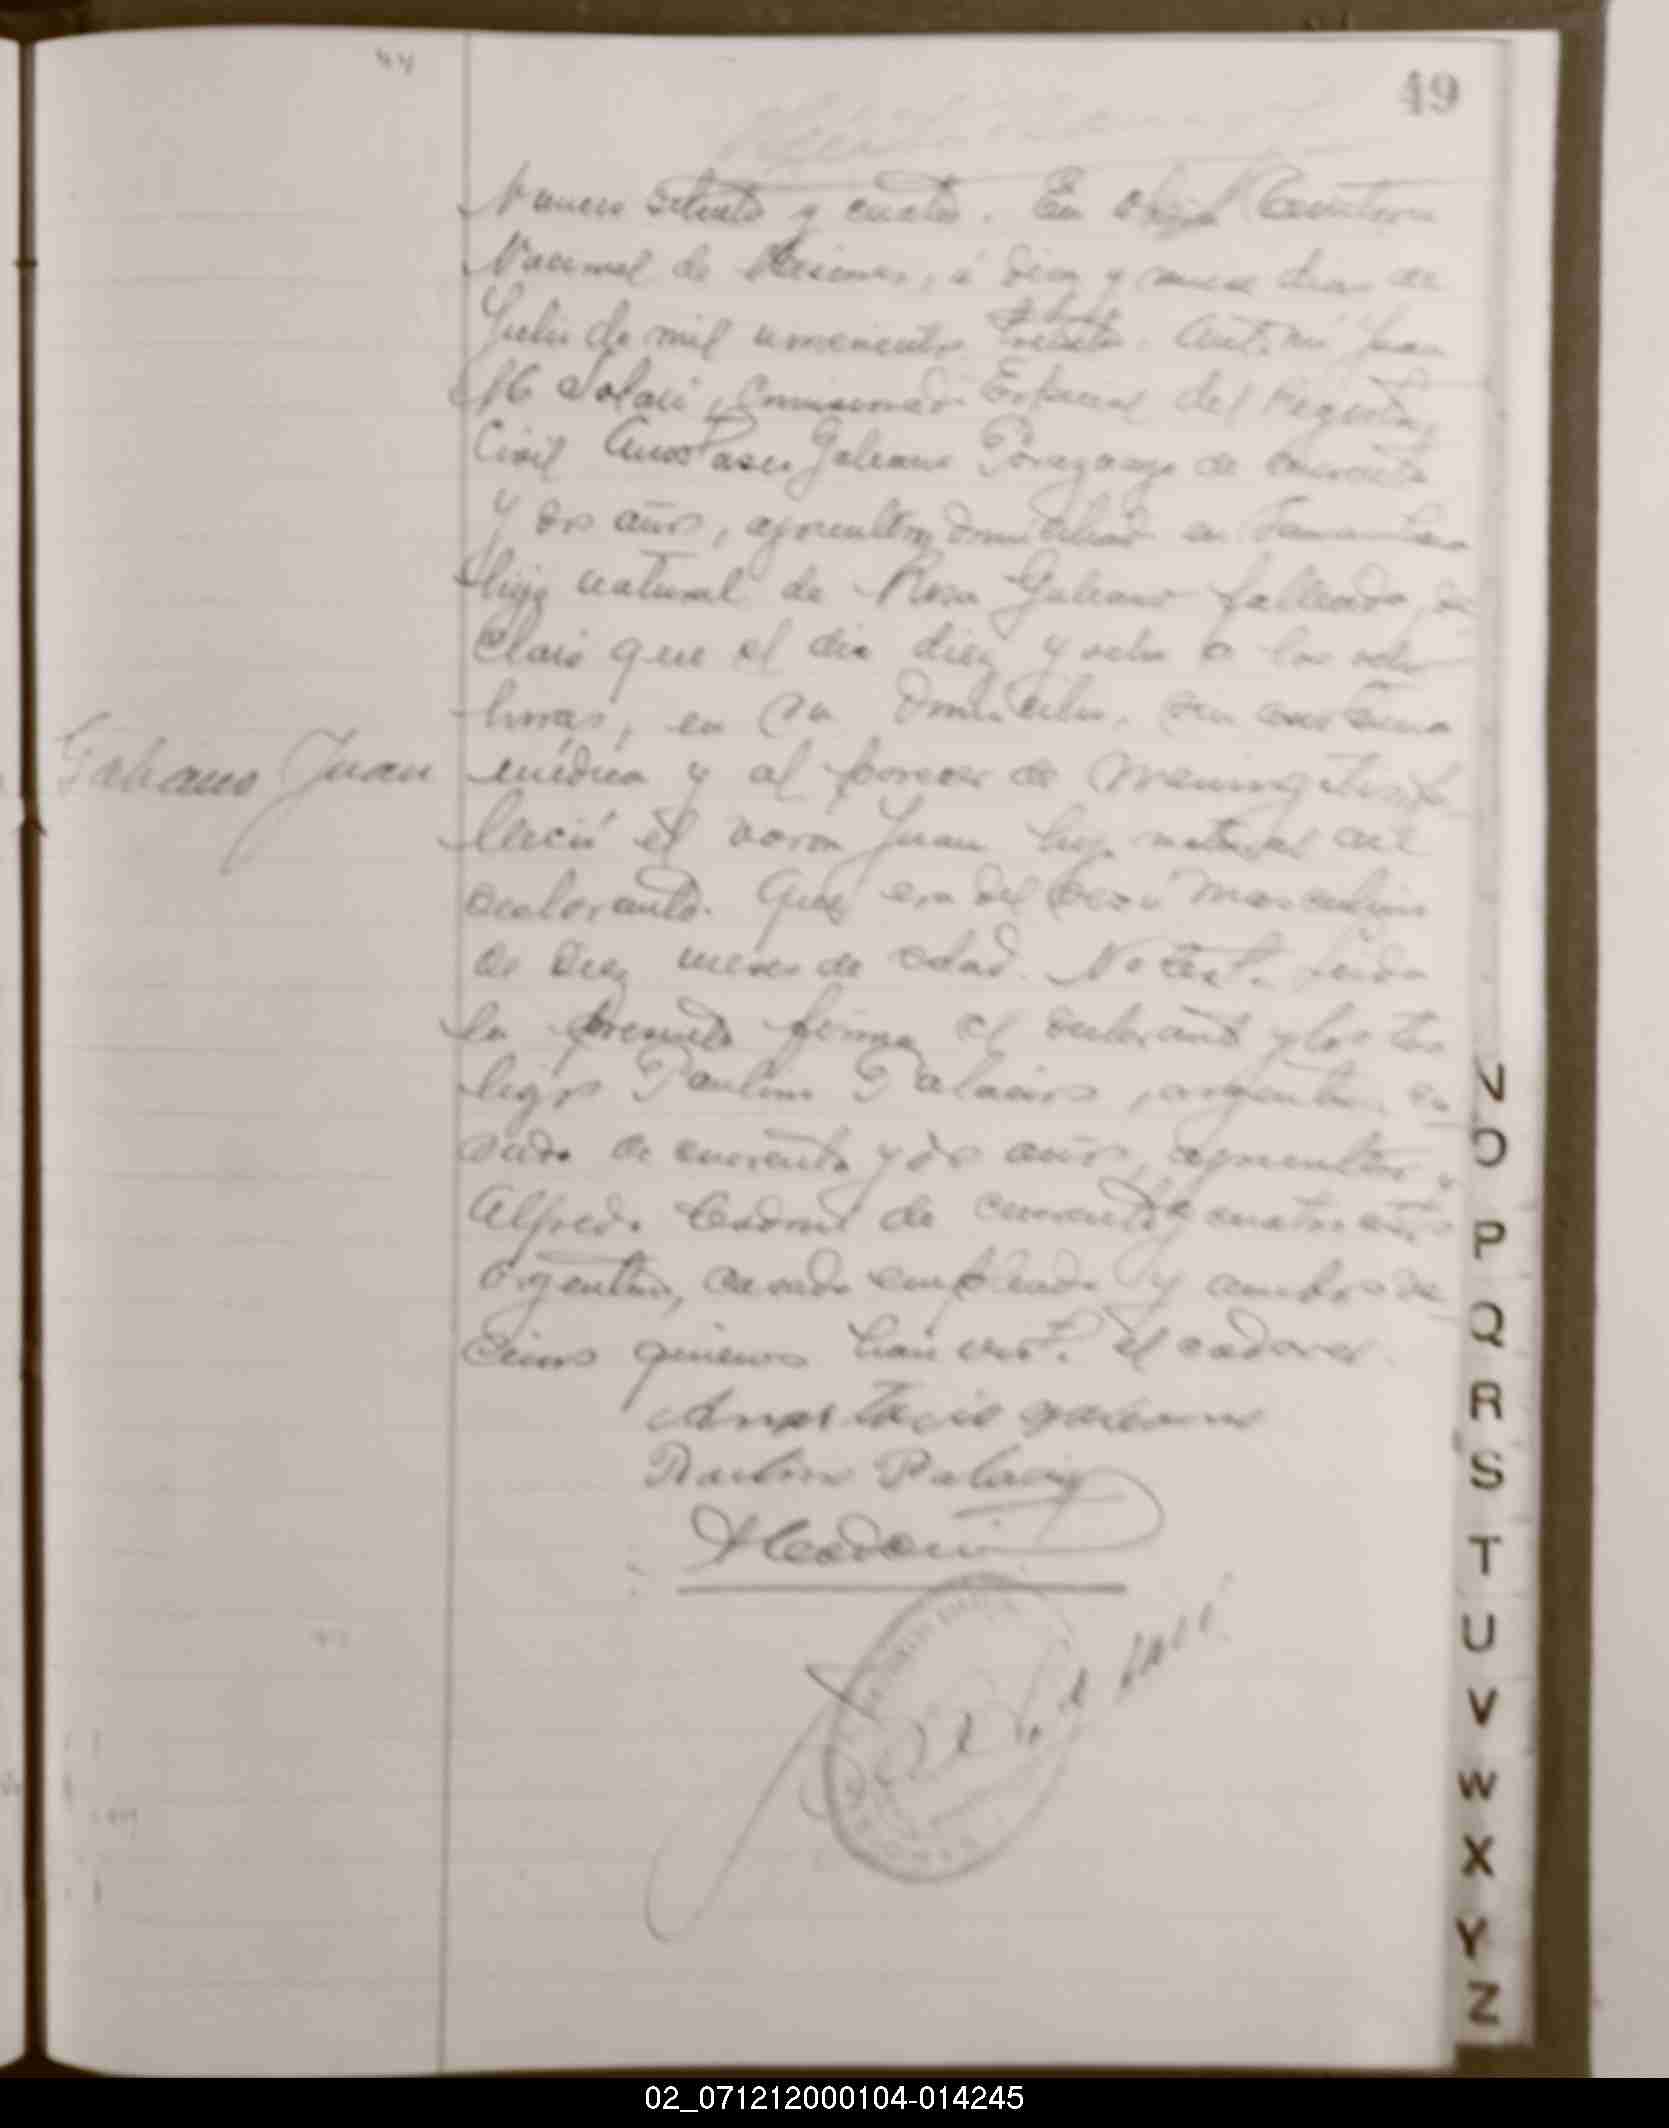 49
Numero setenta y cuatro. En
Nacional de Misiones, á diez y nueve dias de
Julio de mil novecientos treinta. Ante mi Juan
M Solari, Comisionado Especial del Registro
Civil Anastasio Galeano Paraguayo de cuarenta
y dos años, agricultor domiciliado en
hijo natural de Rosa Galeano fallecida, de
claró que el dia diez y ocho a las ocho
horas, en su domicilio, sin asistencia
Galeano Juan
médica y al parecer de Meningitis, fa
lleció el varon Juan hijo natural del
declarante. Que era del sexo Masculino
de Diez meses de edad. No testó. Leida
la presente firma el declarante y los tes
tigos Paulino Palacios, argentino, ca
sado de cuarenta y dos años, agricultor, y
Alfredo de cuarenta y cuatro años
argentino, casado empleado y ambos ve
cinos quienes han visto el cadaver.
Anastacio galeano
Paulino Palacios
N
O
P
Q
R
S
T
U
V
W
X
Y
Z
02_071212000104-014245